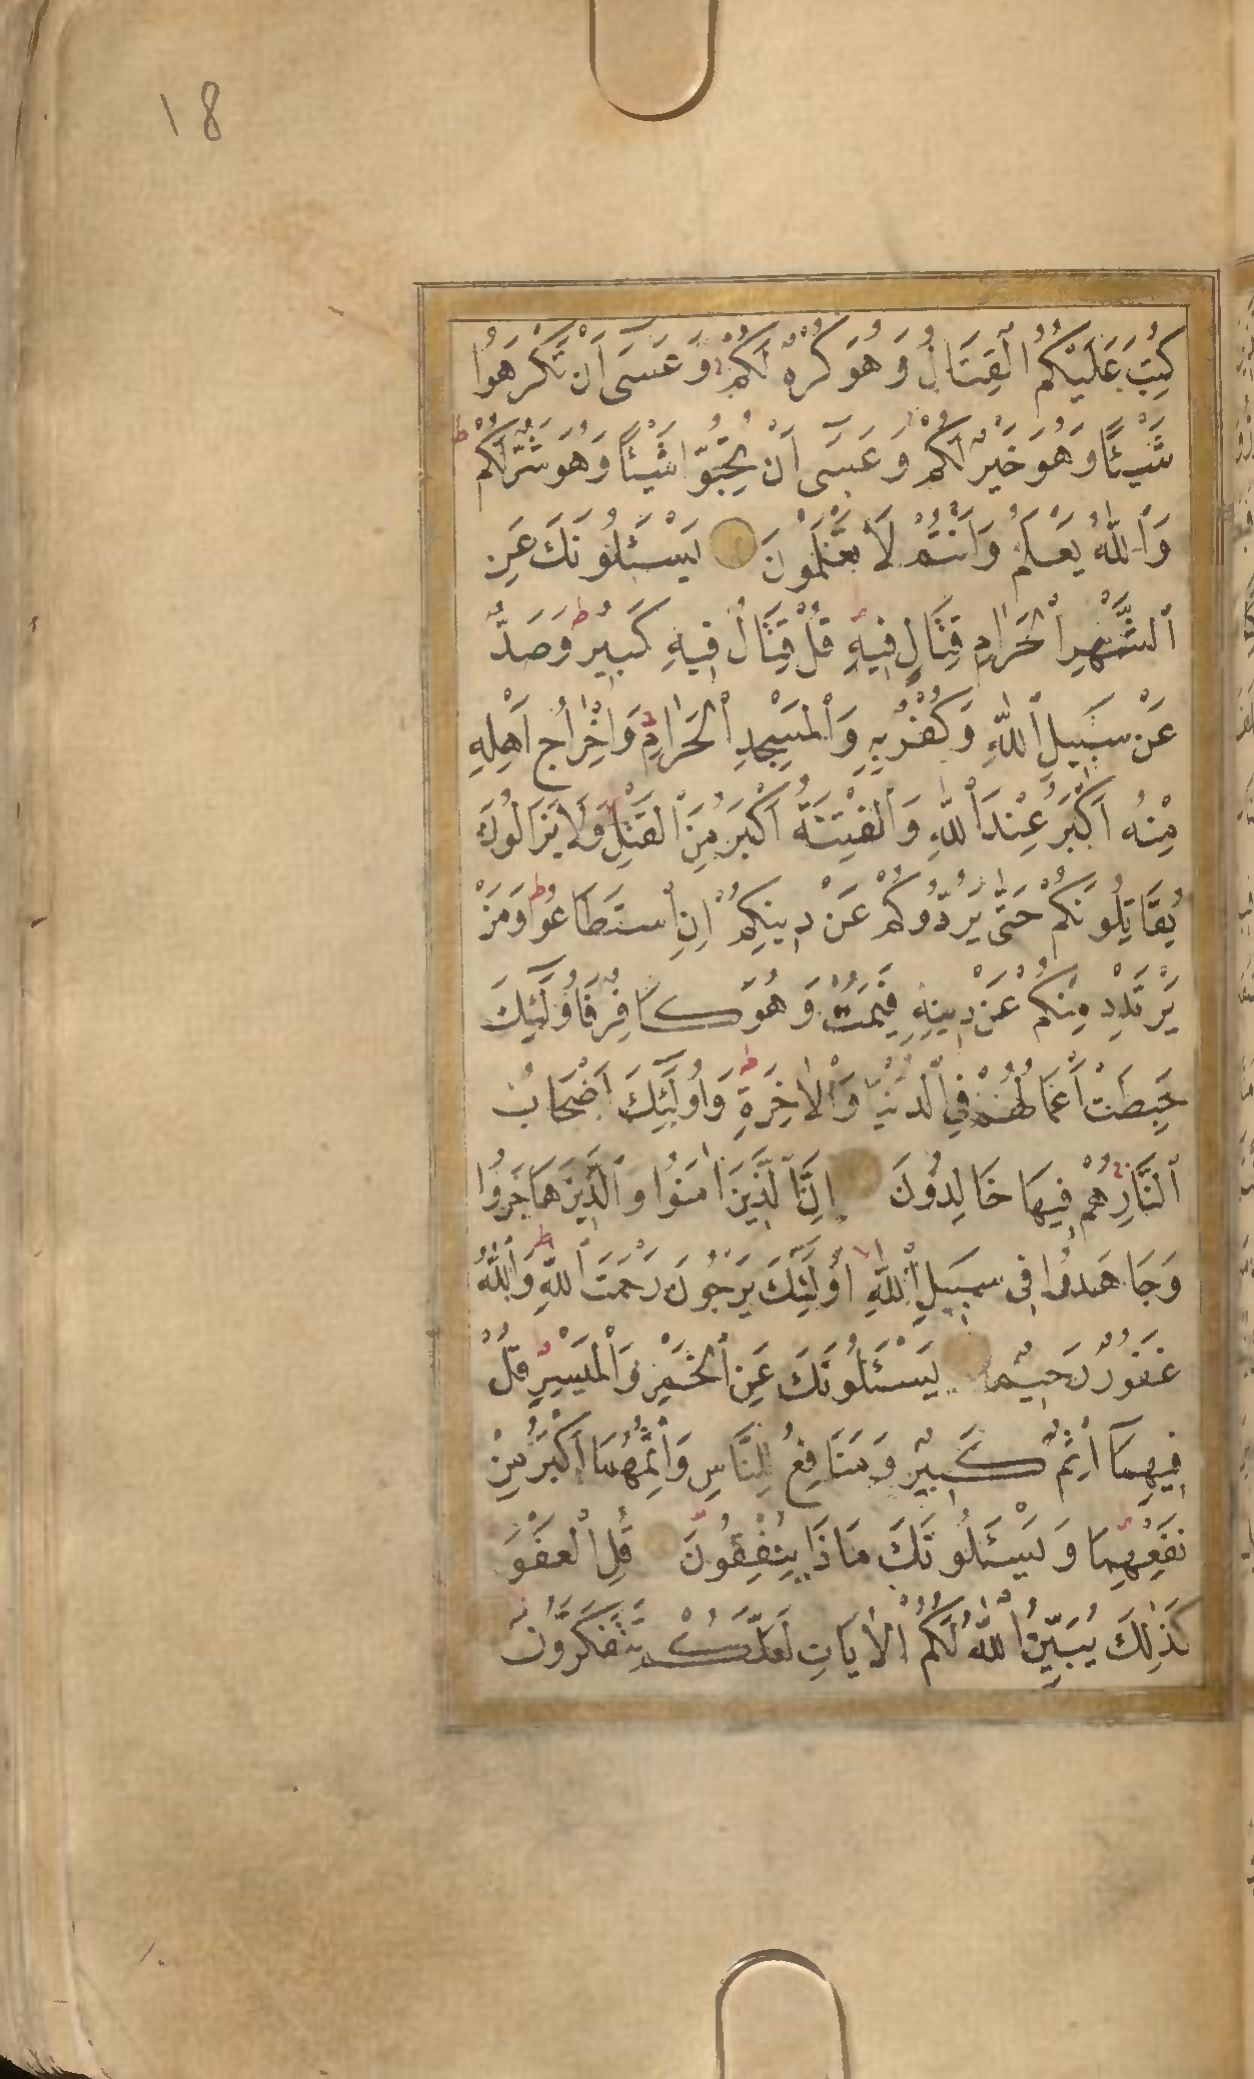 18
كُتِبَ عَلَيْكُمُ ٱلْقِتَالُ وَهُوَ كُرْهٌ لَكُمْ وَعَسَى أَنْ تَكْرَهُوا
شَيْئًا وَهُوَ خَيْرٌ لَكُمْ وَعَسَى أَنْ تُحِبُّوا شَيْئًا وَهُوَ شَرٌّ لَكُمْ ط
وَٱللّٰهُ يَعْلَمُ وَأَنْتُمْ لَا تَعْلَمُونَ يَسْـَٔلُونَكَ عَنِ
ٱلشَّهْرِ ٱلْحَرَامِ قِتَالٍ فِيهِ قُلْ قِتَالٌ فِيهِ كَبِيرٌ ط وَصَدٌّ
عَنْ سَبِيلِ ٱللّٰهِ وَكُفْرٌ بِهِ وَٱلْمَسْجِدِ ٱلْحَرَامِ وَإِخْرَاجُ أَهْلِهِ
مِنْهُ أَكْبَرُ عِنْدَ ٱللّٰهِ وَٱلْفِتْنَةُ أَكْبَرُ مِنَ ٱلْقَتْلِ وَلَا يَزَالُونَ
يُقَاتِلُونَكُمْ حَتَّى يَرُدُّوكُمْ عَنْ دِينِكُمْ إِنِ ٱسْتَطَاعُوا ط وَمَنْ
يَرْتَدِدْ مِنْكُمْ عَنْ دِينِهِ فَيَمُتْ وَهُوَ كَافِرٌ فَأُولَٓئِكَ
حَبِطَتْ أَعْمَالُهُمْ فِي ٱلدُّنْيَا وَٱلْاٰخِرَةِ ط وَأُولَٓئِكَ أَصْحَابُ
ٱلنَّارِ هُمْ فِيهَا خَالِدُونَ إِنَّ ٱلَّذِينَ اٰمَنُوا وَٱلَّذِينَ هَاجَرُوا
وَجَاهَدُوا فِي سَبِيلِ ٱللّٰهِ لا أُولَٓئِكَ يَرْجُونَ رَحْمَتَ ٱللّٰهِ ط وَٱللّٰهُ
غَفُورٌ رَحِيمٌ يَسْـَٔلُونَكَ عَنِ ٱلْخَمْرِ وَٱلْمَيْسِرِ قُلْ
فِيهِمَا إِثْمٌ كَبِيرٌ وَمَنَافِعُ لِلنَّاسِ وَإِثْمُهُمَا أَكْبَرُ مِنْ
نَفْعِهِمَا وَيَسْـَٔلُونَكَ مَاذَا يُنْفِقُونَ قُلِ ٱلْعَفْوَ
كَذٰلِكَ يُبَيِّنُ ٱللّٰهُ لَكُمُ ٱلْاٰيَاتِ لَعَلَّكُمْ تَتَفَكَّرُونَ